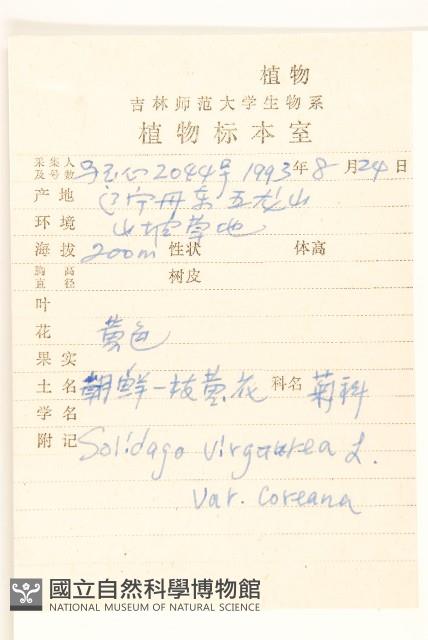 植物
吉林师范大学生物系
植物标本室
采集人及号数 2044号 1993年8月24日
产地 辽宁丹东五龙山
环境 山坡草地
海拔 200m 性状 体高
胸高直径 树皮
叶
花 黄色
果实
土名 朝鲜一枝黄花 科名 菊科
学名
附记 Solidago virgaurea L.
var. coreana
國立自然科學博物館
NATIONAL MUSEUM OF NATURAL SCIENCE